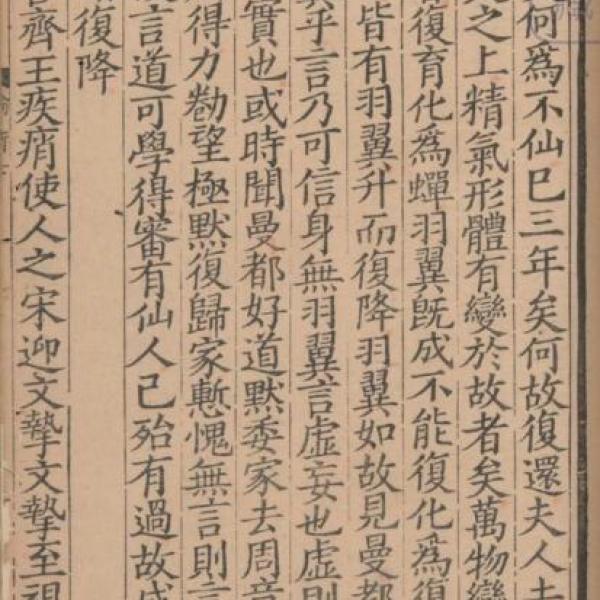 何為不仙已三年矣何故復還夫人去
之上精氣形體有變於故者矣萬物變
復育化為蟬羽翼既成不能復化為復
皆有羽翼升而復降羽翼如故見曼都
乎言乃可信身無羽翼言虛妄也虛則
實也或時聞曼都好道默委家去周章
得力勌望極默復歸家慙愧無言則言
言道可學得審有仙人己殆有過故成
復降
齊王疾痟使人之宋迎文摯文摯至視